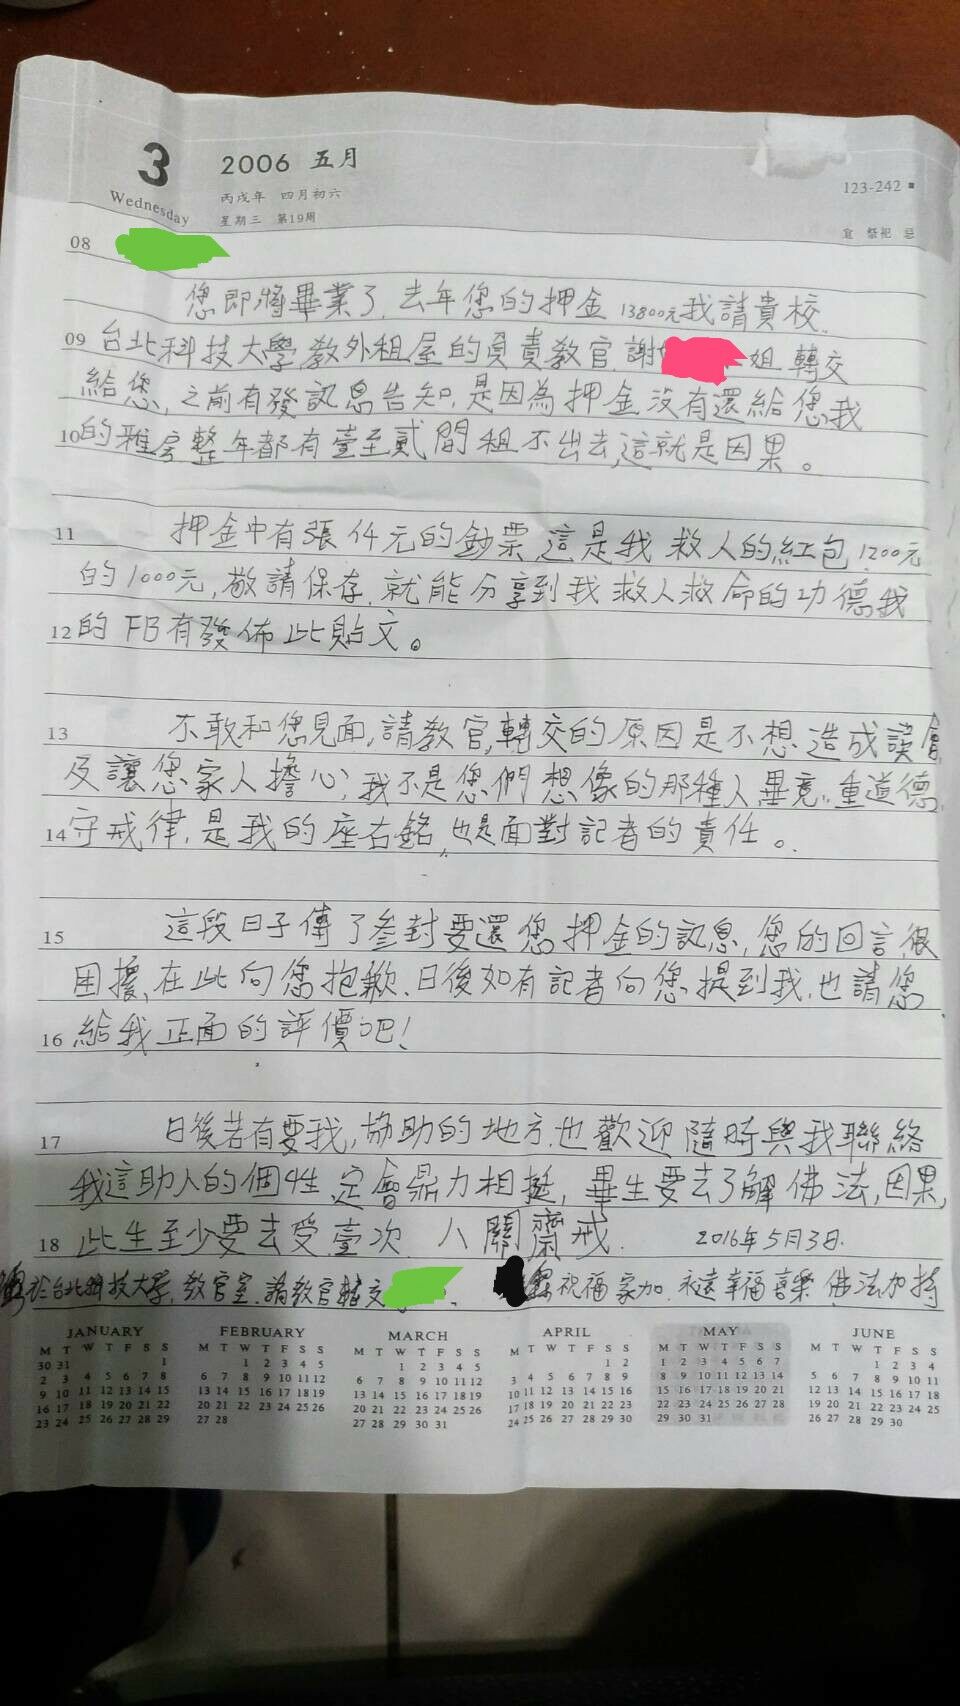 3
Wednesday
2006 五月
丙戌年 四月初六
星期三 第19周
123-242
宜 祭祀 忌
08
您即將畢業了，去年您的押金13800元我請貴校，
09 台北科技大學教外租屋的負責教官，謝 姐 轉交
給您，之前有發訊息告知，是因為押金沒有還給您我
10 的雅房整年都有壹至貳間租不出去，這就是因果。
11 押金中有張仟元的鈔票 這是我救人的紅包，1200元
的1000元，敬請保存，就能分享到我救人救命的功德我
12 的FB有發佈此貼文。
13 不敢和您見面，請教官，轉交的原因是不想造成誤會
及讓您家人擔心，我不是您們想像的那種人畢竟，重道德，
14 守戒律，是我的座右銘，也是面對記者的責任。
15 這段日子傳了參封要還您押金的訊息，您的回言很
困擾，在此向您抱歉，日後如有記者向您提到我，也請您
16 給我正面的評價吧！
17 日後若有要我，協助的地方，也歡迎隨時與我聯絡
我這助人的個性，定會鼎力相挺，畢生要去了解佛法，因果，
18 此生至少要去受壹次 八關齋戒． 2016年5月3日．
於台北科技大學，教官室，請教官轉交 祝福家加，永遠幸福喜樂 佛法加持
JANUARY FEBRUARY MARCH APRIL MAY JUNE
M T W T F S S M T W T F S S M T W T F S S M T W T F S S M T W T F S S M T W T F S S
30 31 1 1 2 3 4 5 1 2 3 4 5 1 2 1 2 3 4 5 6 7 1 2 3 4
2 3 4 5 6 7 8 6 7 8 9 10 11 12 6 7 8 9 10 11 12 3 4 5 6 7 8 9 8 9 10 11 12 13 14 5 6 7 8 9 10 11
9 10 11 12 13 14 15 13 14 15 16 17 18 19 13 14 15 16 17 18 19 10 11 12 13 14 15 16 15 16 17 18 19 20 21 12 13 14 15 16 17 18
16 17 18 19 20 21 22 20 21 22 23 24 25 26 20 21 22 23 24 25 26 17 18 19 20 21 22 23 22 23 24 25 26 27 28 19 20 21 22 23 24 25
23 24 25 26 27 28 29 27 28 27 28 29 30 31 24 25 26 27 28 29 30 29 30 31 26 27 28 29 30